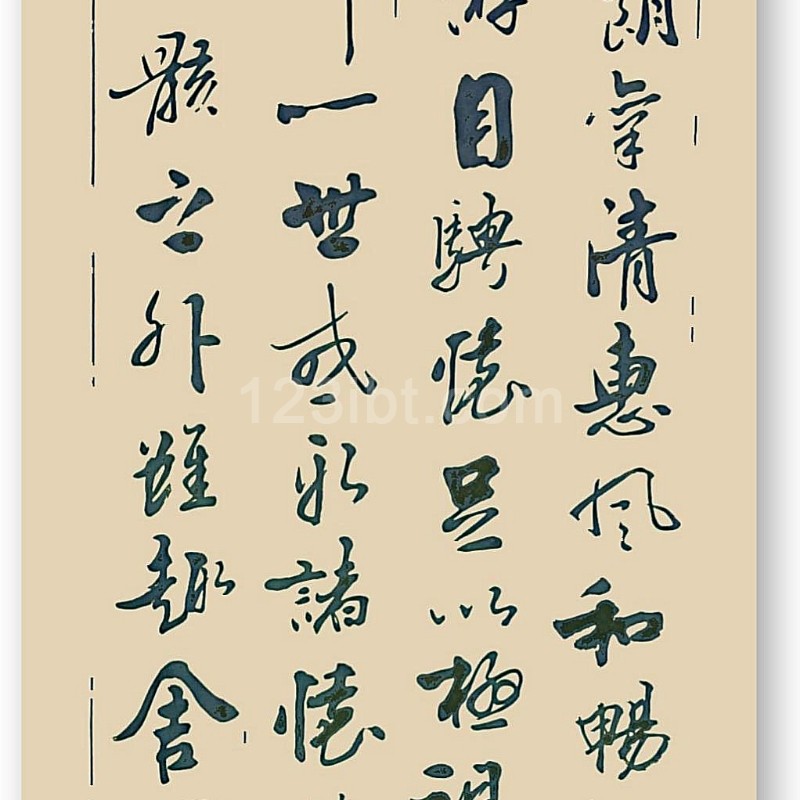 朗氣清惠風和暢
游目騁懷足以極視
一世或取諸懷
骸之外雖趣舍
123lbt.com